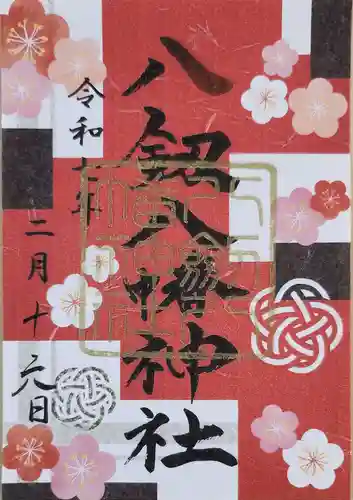 八釼八幡神社
令和七年
二月十六日